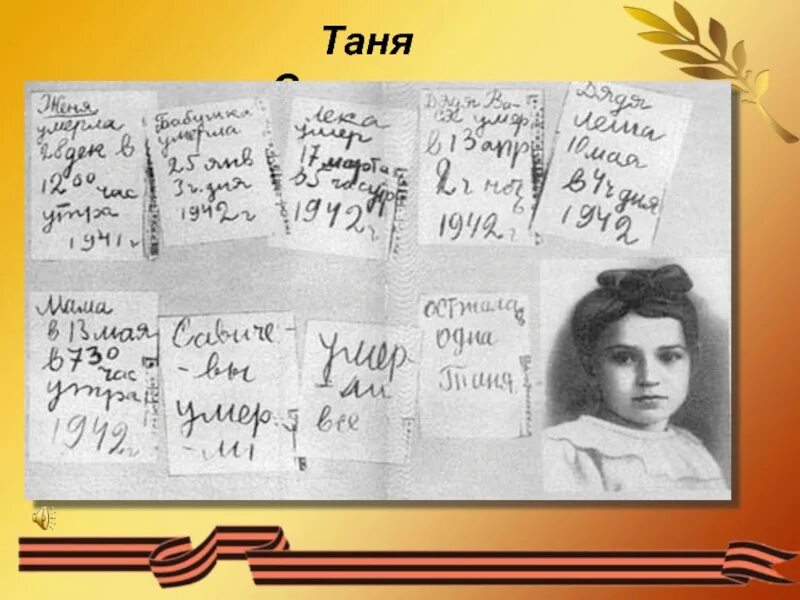 Таня
С
Женя
умерла
28 дек в
12 00 час
утра
1941 г
Бабушка
умерла
25 янв
3 ч. дня
1942 г
Лека
умер
17 марта
в 5 час утр
1942 г
Дядя Ва-
ся умер
в 13 апр
2 ч ноч
1942 г
Дядя
Леша
10 мая
в 4 ч дня
1942
Мама
в 13 мая
в 7 30
час
утра
1942 г
Савиче-
-вы
умер-
-ли
умер
-ли
все
осталась
одна
Таня